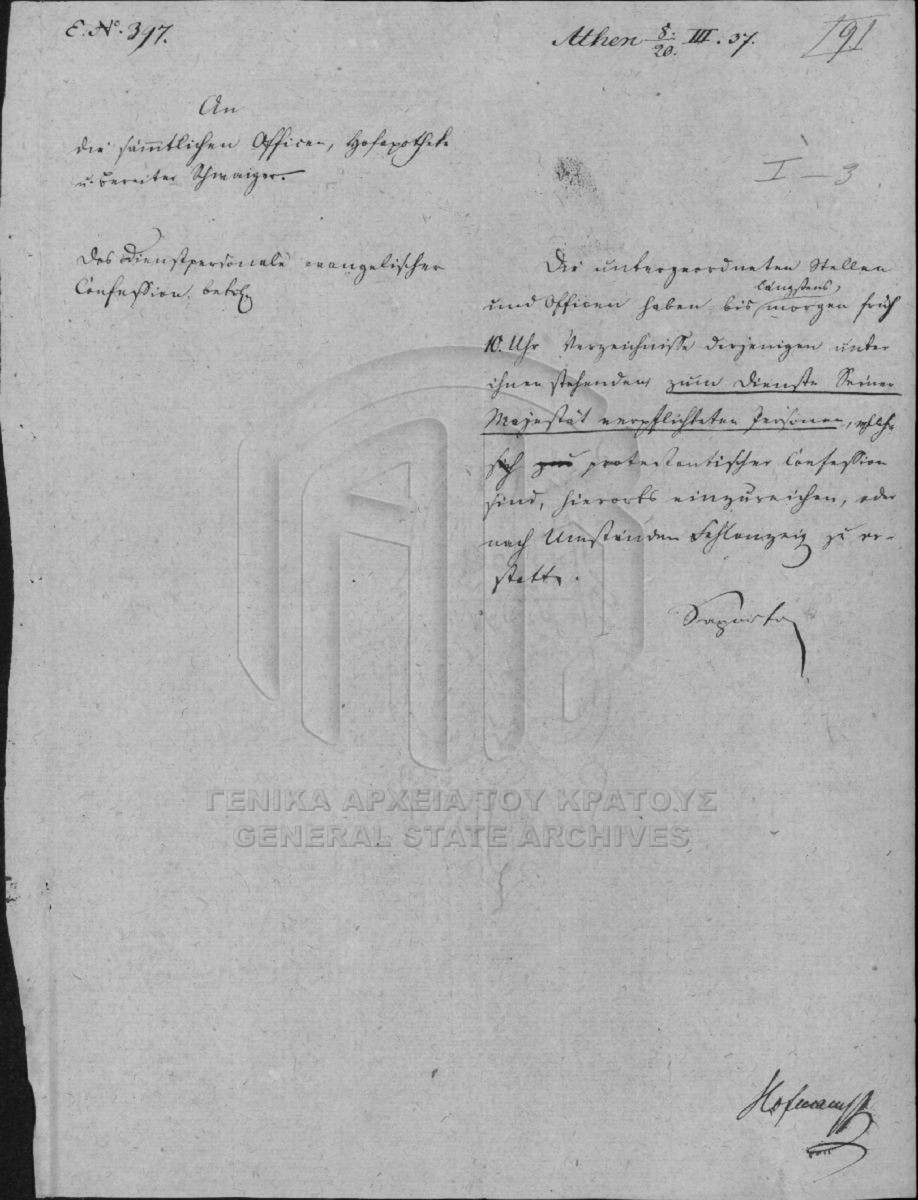 E. No. 397.
Athen 8./20. III. 37.
191
An
die sämmtlichen Officen, Hofapotheke
u. Bereiter Schwaiger.
I – 3
Das Dienstpersonale evangelischer
Confession betr.
Die untergeordneten Stellen
und Officen haben bis längstens, morgen früh
10. Uhr Verzeichnisse derjenigen unter
ihnen stehenden zum Dienste Seiner
Majestät verpflichteten Personen, welche
protestantischer Confession
sind, hierorts einzureichen, oder
nach Umständen Fehlanzeig zu er-
statten.
Saporta
ΓΕΝΙΚΑ ΑΡΧΕΙΑ ΤΟΥ ΚΡΑΤΟΥΣ
GENERAL STATE ARCHIVES
Hofmann